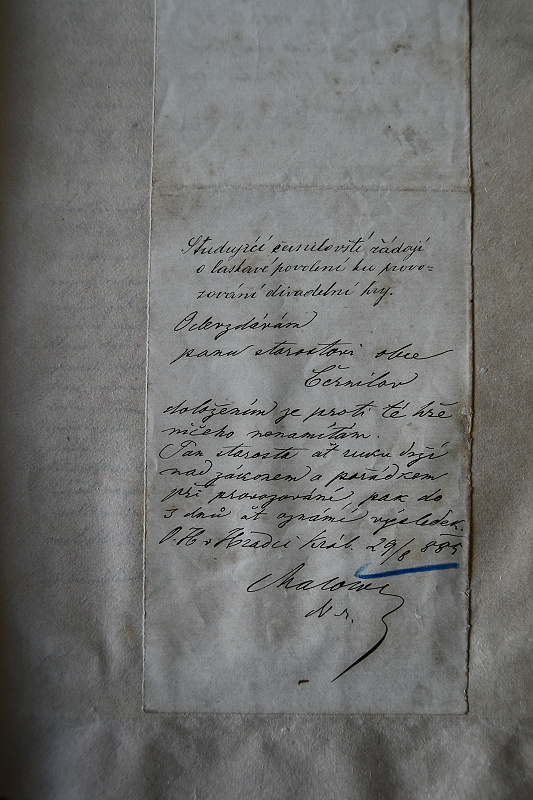 Studující černilovští žádají
o laskavé povolení ku provo=
zování divadelní hry.
Odevzdávám
panu starostovi obce
Černilov
doložením že proti té hře
ničeho nenamítám.
Pan starosta ať ruku drží
nad zákonem a pořádkem
při provozování, pak do
3 dnů ať oznámí výsledek.
O. H. v Hradci Král. 29/8 885